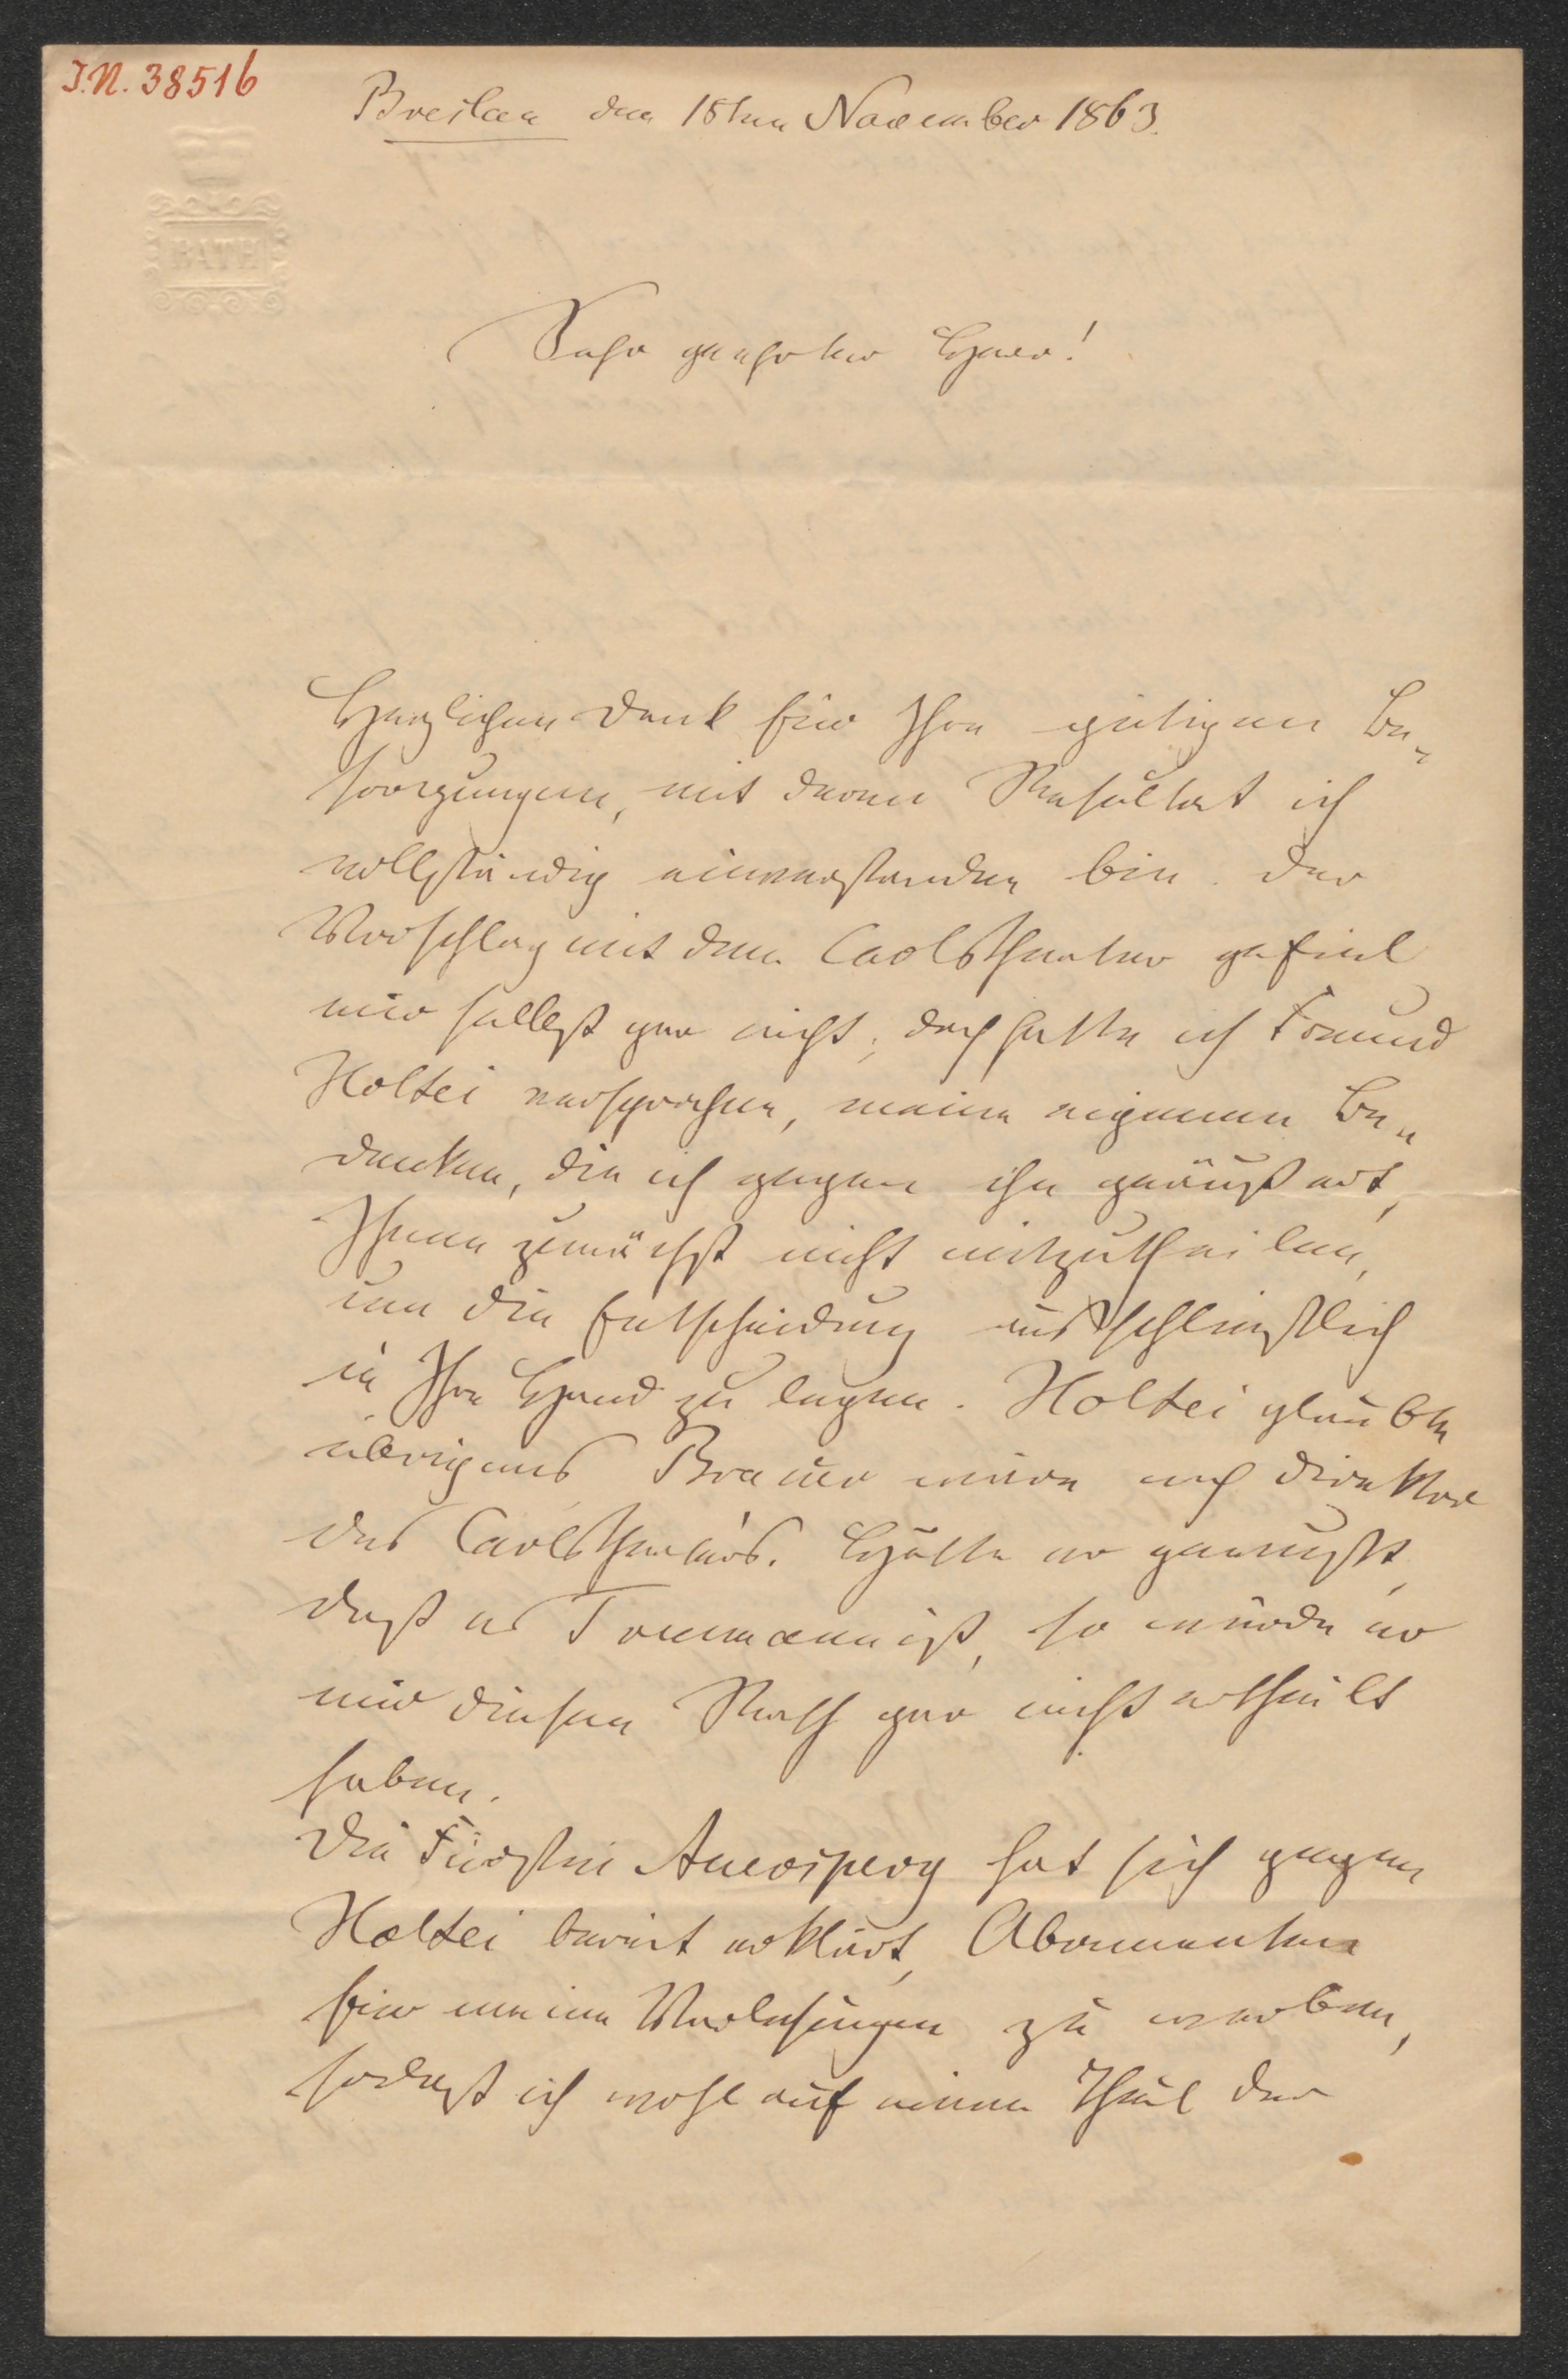 J.N. 38516
Breslau den 15ten November 1863.
BATH
Sehr geehrter Herr!
Herzlichen Dank für Ihre gütigen Be-
sorgungen, mit deren Resultat ich
vollständig einverstanden bin. Der
Vorschlag mit dem Carlstheater gefiel
mir selbst gar nicht; doch hatte ich Freund
Holtei versprochen, meine eigenen Be-
denken, die ich gegen ihn geäußert,
Ihnen zunächst nicht mitzutheilen,
um die Entscheidung ausschließlich
in Ihre Hand zu legen. Holtei glaubte
übrigens Brauer wäre noch Direktor
des Carlstheaters. Hätte er gewußt,
daß es Treumann ist, so würde er
mir diesen Rath gar nicht ertheilt
haben.
Die Fürstin Auersperg hat sich gegen
Holtei bereit erklärt, Abonnenten
für meine Vorlesungen zu werben,
sodaß ich wohl auf einen Theil der